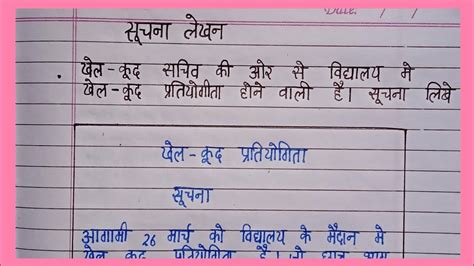 Date / /
सूचना लेखन
. खेल-कूद सचिव की ओर से विद्यालय मे
खेल-कूद प्रतियोगीता होने वाली है। सूचना लिबे
खेल-कूद प्रतियोगिता
सूचना
आगामी 26 मार्च को विद्यालय के मैदान मे
खेल कूद प्रतियोगिता है।